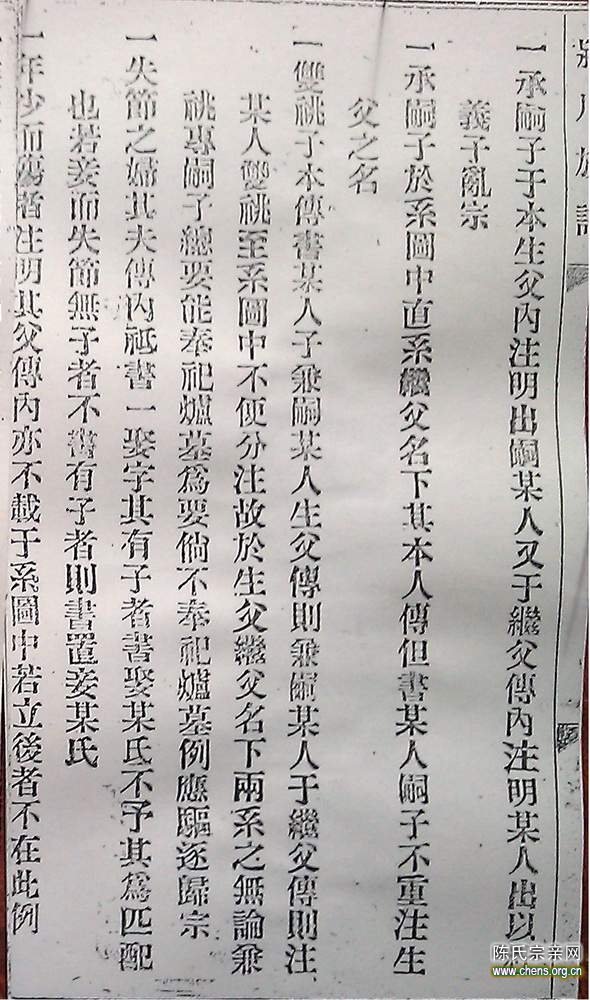 一承嗣子于本生父內注明出嗣某人又于繼父傳內注明某人出以
義子亂宗
一承嗣子於系圖中直系繼父名下其本人傳但書某人嗣子不重注生
父之名
一雙祧子本傳書某人子兼嗣某人生父傳則兼嗣某人于繼父傳則注
某人雙祧至系圖中不便分注故於生父繼父名下兩系之無論兼
祧專嗣子總要能奉祀爐墓爲要倘不奉祀爐墓例應驅逐歸宗
一失節之婦其夫傳內祗書一娶字其有子者書娶某氏不予其爲匹配
也若妾而失節無子者不書有子者則書置妾某氏
一年少而殤者注明其父傳內亦不載于系圖中若立後者不在此例
陈氏宗亲网
www.chens.org.cn